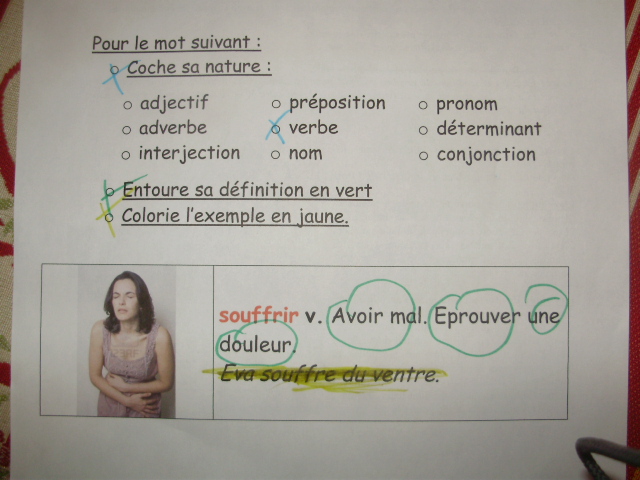 Pour le mot suivant :
Coche sa nature :
adjectif préposition pronom
adverbe verbe déterminant
interjection nom conjonction
Entoure sa définition en vert
Colorie l'exemple en jaune.
souffrir v. Avoir mal. Eprouver une
douleur.
Eva souffre du ventre.